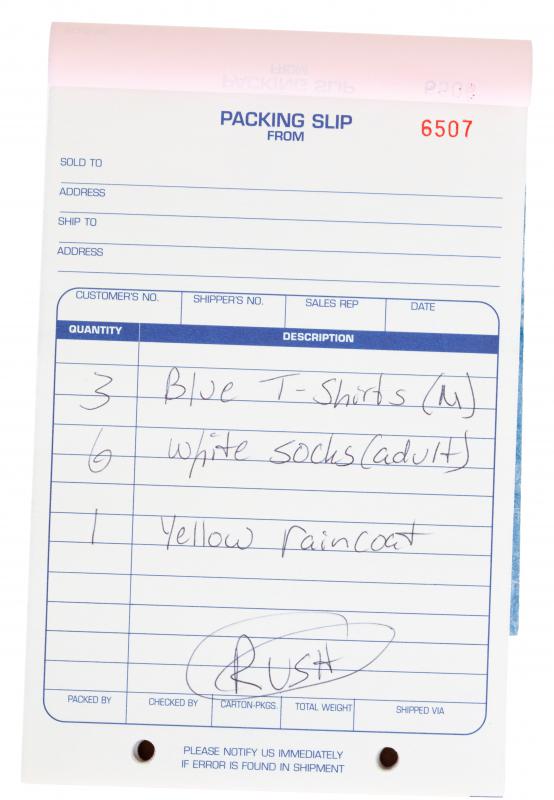 PACKING SLIP
FROM
6507
SOLD TO
ADDRESS
SHIP TO
ADDRESS
CUSTOMER'S NO. SHIPPER'S NO. SALES REP DATE
QUANTITY DESCRIPTION
3 Blue T-Shirts (M)
6 white socks (adult)
1 Yellow raincoat
RUSH
PACKED BY CHECKED BY CARTON-PKGS. TOTAL WEIGHT SHIPPED VIA
PLEASE NOTIFY US IMMEDIATELY
IF ERROR IS FOUND IN SHIPMENT